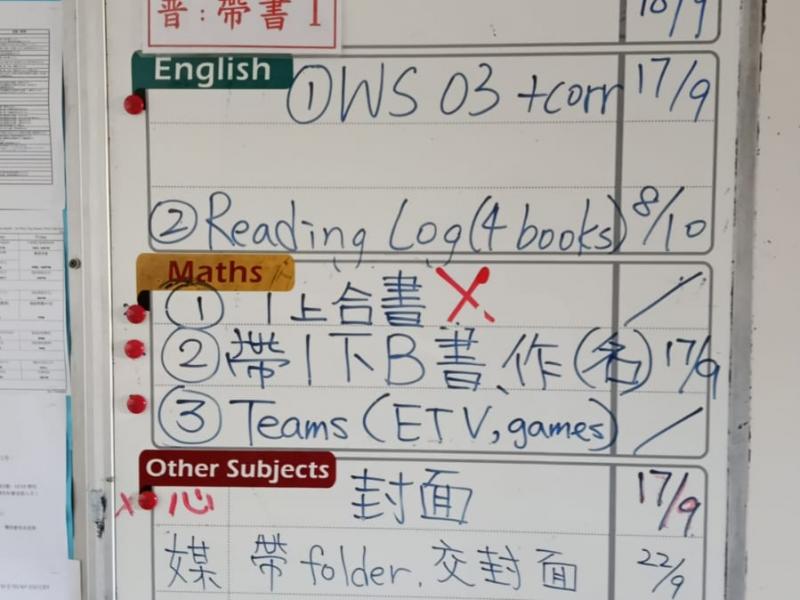 普：帶書 1
18/9
English
① WS 03 + corr 17/9
② Reading Log (4 books) 8/10
Maths
① 1上合書 X
② 帶1下B書、作(名) 17/9
③ Teams (ETV, games)
Other Subjects
x 心 封面 17/9
媒 帶 folder. 交封面 22/9